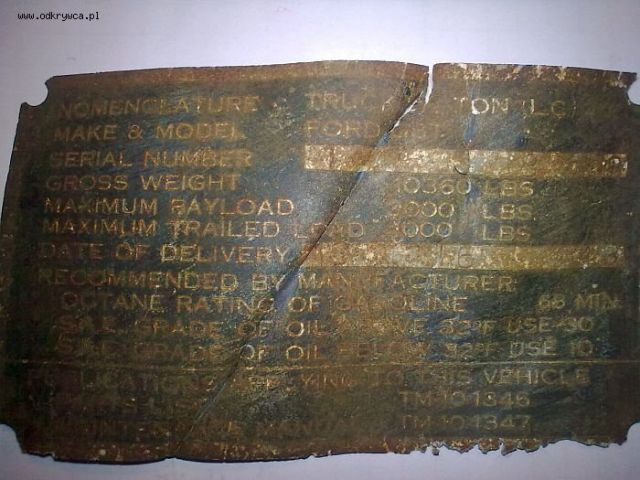 www.odkrywca.pl
NOMENCLATURE TRUCK TON (LC)
MAKE & MODEL FORD
SERIAL NUMBER
GROSS WEIGHT 10360 LBS.
MAXIMUM PAYLOAD 000 LBS.
MAXIMUM TRAILED LOAD 000 LBS.
DATE OF DELIVERY
RECOMMENDED BY MANUFACTURER:
OCTANE RATING OF GASOLINE 68 MIN.
S.A.E. GRADE OF OIL ABOVE 32°F USE 30
S.A.E. GRADE OF OIL BELOW 32°F USE 10
PUBLICATIONS APPLYING TO THIS VEHICLE
PARTS LIST TM-10-1346
MAINTENANCE MANUAL TM-10-1347